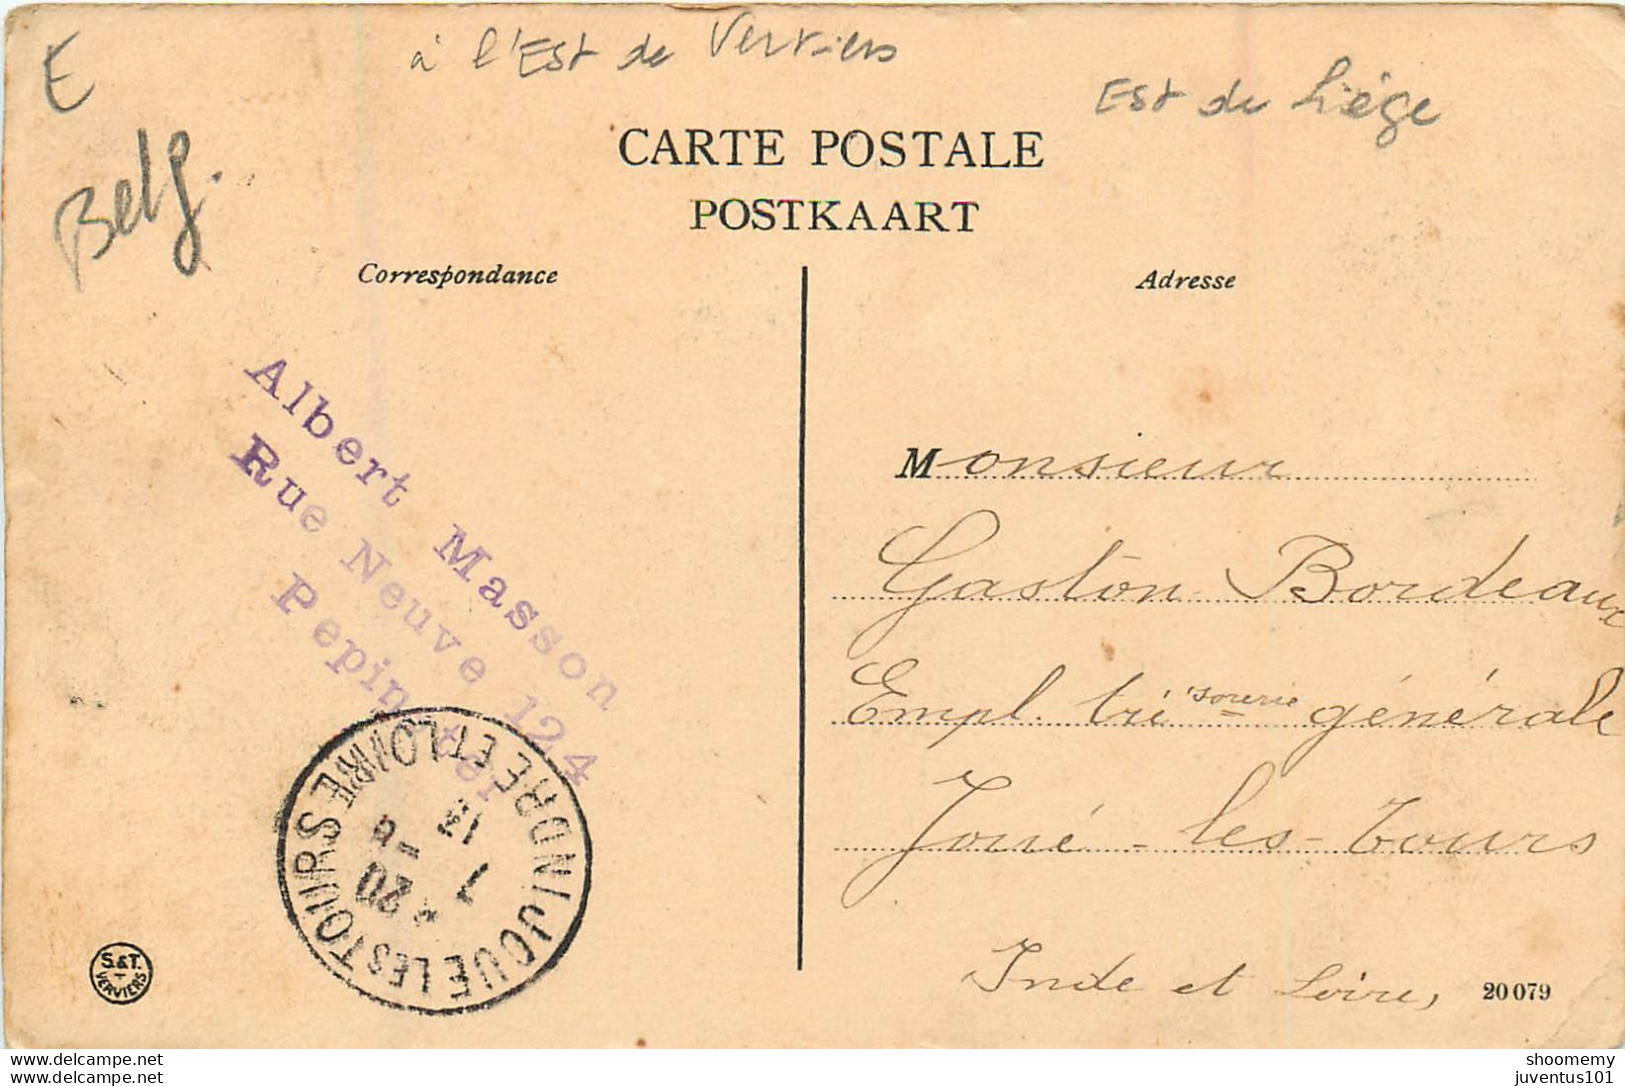 E
à l'Est de Verviers
Est de Liège
Belg.
CARTE POSTALE
POSTKAART
Correspondance
Adresse
Albert Masson
Rue Neuve 124
Pepinster
Monsieur
Gaston Bordeaux
Empl. trésorerie générale
Joué-les-Tours
Inde et Loire,
JOUE LES TOURS
INDRE ET LOIRE
S.&T.
VERVIERS
20079
delcampe.net
delcampe.net
shoomemy
juventus101